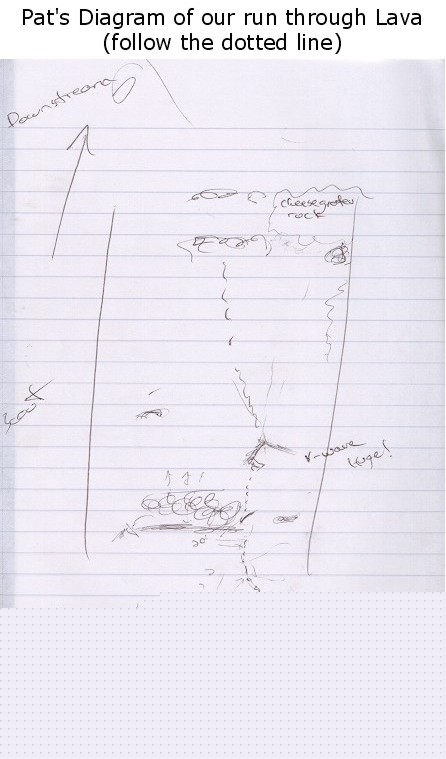 Pat's Diagram of our run through Lava
(follow the dotted line)
Downstream
cheesegrater
rock
V-wave
Huge!